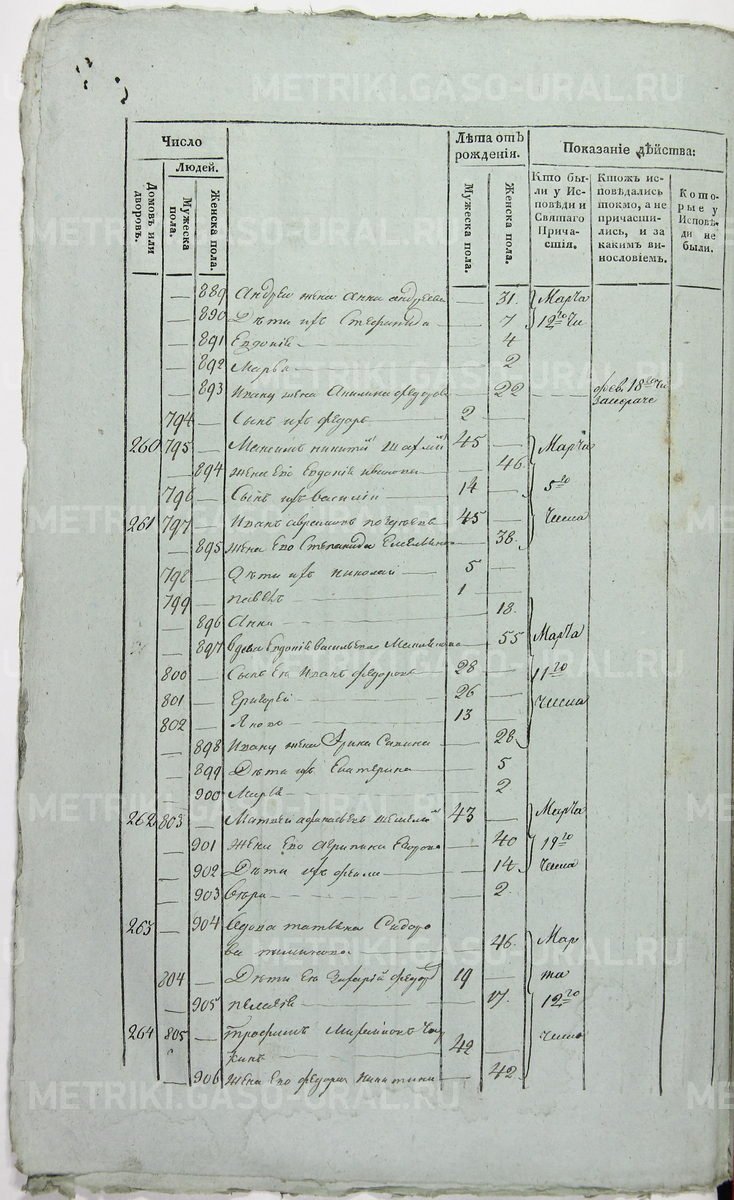 METRIKI.GASO-URAL.RU
Число
Людей.
Домовъ или дворовъ.
Мужеска пола.
Женска пола.
Лѣта отъ рожденія.
Мужеска пола.
Женска пола.
Показаніе дѣйства:
Кто были у Исповѣди и Святаго Причастія.
Ктожъ исповѣдались токмо, а не причастились, и за какимъ винословіемъ.
Которые у Исповѣди не были.
— 889 Андрея жена Анна Андреева — 31. Марта
— 890 Дѣти ихъ Степанида — 7 12го Чи
— 891 Евдокія — 4
— 892 Марья — 2
— 893 Ивану жена Федорова — 22 — фев. 18го Чи
794 — Сынъ ихъ Федоръ 2 —
260 795 — Максимъ Никитинъ 45 — Марта
— 894 Жена Его Евдокія Иванова — 46.
796 — Сынъ ихъ Василій 14 — 5го
261 797 — Иванъ 45 — Числа
— 895 Жена Его Степанида Емельянова — 38.
798 — Дѣти ихъ Николай 5 —
799 — Павелъ 1 —
— 896 Анна — 18.
— 897 Вдова Евдокія Васильева — 55 Марта
800 — Сынъ Ея Иванъ Федоровъ 28 — 11го
801 — Григорей 26 — Числа
802 — Яковъ 13 —
— 898 Ивану жена Ирина Савина — 28.
— 899 Дѣти ихъ Екатерина — 5
— 900 Марья — 2
262 803 — Матвей 43 — Марта
— 901 Жена Его Агрипина Егорова — 40 19го
— 902 Дѣти ихъ — 14 Числа
— 903 Вѣра — 2.
263 — 904 Вдова Татьяна Сидоро
ва — 46. Мар
804 — Дѣти Ея Захарій Федоров 19 — та
— 905 Пелагія — 17. 12го
264 805 — Трофимъ 42 — Числа
— 906 Жена Его Федора Никитина — 42.